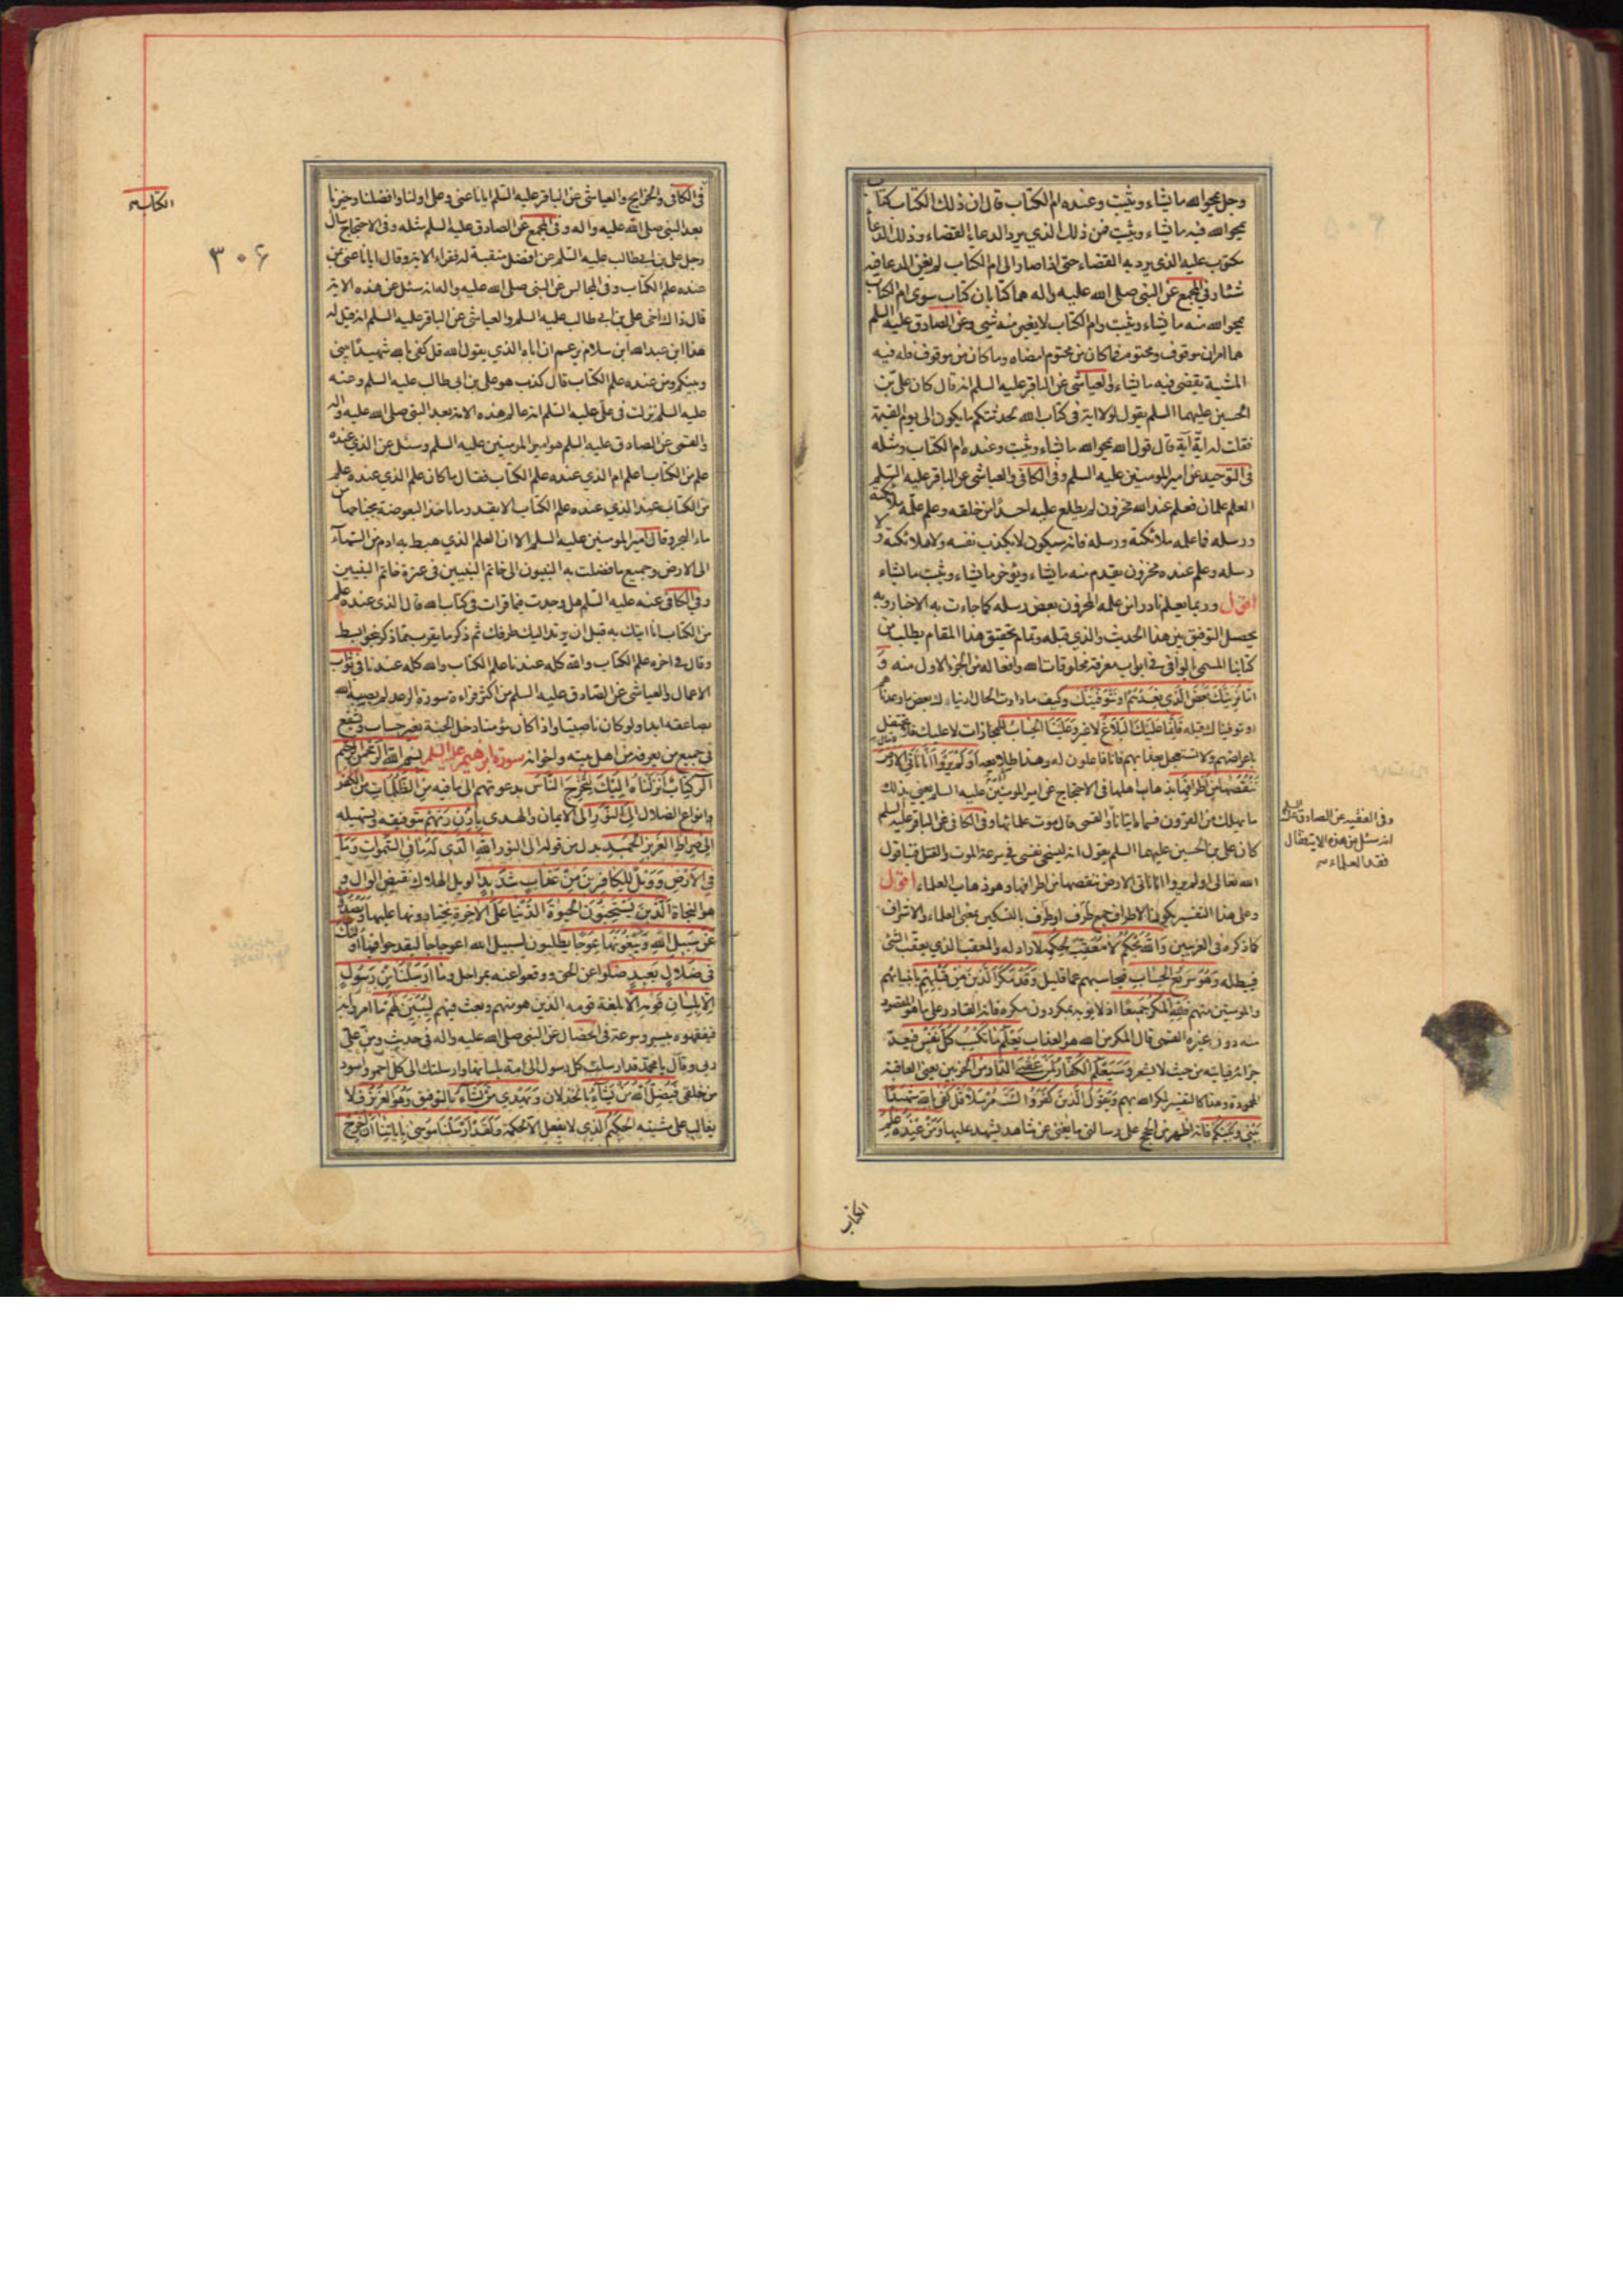 وجل يمحوا الله ما يشاء ويثبت وعنده ام الكتاب قال ان ذلك الكتاب كتاب
يمحوا الله فيه ما يشاء ويثبت فمن ذلك الذي يرد الدعاء القضاء وذلك الدعا
مكتوب عليه الذي يرد به القضاء حتى اذا صار الى ام الكتاب لم يغن الدعا فيه
شئا وفي المجمع عن النبي صلى الله عليه واله هما كتابان كتاب سوى ام الكتاب
يمحوا الله منه ما يشاء ويثبت وام الكتاب لا يغير منه شي وعن الصادق عليه السلم
هما امران موقوف ومحتوم فما كان من محتوم امضاه وما كان من موقوف فله فيه
المشية يقضي فيه ما يشاء والعياشي عن الباقر عليه السلم انه قال كان علي بن
الحسين عليهما السلم يقول لولا اية في كتاب الله لحدثتكم ما يكون الى يوم القيمة
فقلت له اية آية قال قول الله يمحوا الله ما يشاء ويثبت وعنده ام الكتاب ومثله
في التوحيد عن امير المومنين عليه السلم وفي الكافي والعياشي عن الباقر عليه السلم
العلم علمان فعلم عند الله مخزون لم يطلع عليه احدًا من خلقه وعلم علمه ملائكته
ورسله فما علمه ملائكته ورسله فانه سيكون لا يكذب نفسه ولا ملائكته و لا
رسله وعلم عنده مخزون يقدم منه ما يشاء ويؤخر ما يشاء ويثبت ما يشاء
اقول وربما يعلم نادرا من علمه المخزون بعض رسله كما جاءت به الاخبار وبه
يحصل التوفيق بين هذا الحديث والذي قبله وتمام تحقيق هذا المقام يطلب من
كتابنا المسمى بالوافي في ابواب معرفة مخلوقات الله وافعاله من الجزء الاول منه وَ
اما نُرِيَنَّكَ بَعْضَ الَّذي نَعِدُهُمْ اَوْ نَتَوَفَّيَنَّكَ وكيف ما دارت الحال اريناك بعض ما وعدناهم
او توفيناك قبله فَاِنَّما عَلَيْكَ الْبَلاغُ لا غير وَعَلَيْنَا الْحِسابُ للمجازات لا عليك فلا تحتفل
باعراضهم ولا تستعجل بعذابهم فانا فاعلون له وهذا طلايعه اَوَلَمْ يَرَوْا اَنَّا نَأْتِي الْاَرْضَ
نَنْقُصُها مِنْ اَطْرافِها بذهاب اهلها في الاحتجاج عن امير المومنين عليه السلم يعني بذلك
ما يهلك من القرون فسماه اتيانا والقمي قال موت علمائها وفي الكافي عن الباقر عليه السلم
كان علي بن الحسين عليهما السلم يقول انه ليسخي نفسي في سرعة الموت والقتل فينا قول
الله تعالى اولم يروا انا ناتي الارض ننقصها من اطرافها وهو ذهاب العلماء اقول
وعلى هذا التفسير يكون الاطراف جمع طَرَف او طَرْف بالتسكين بمعنى العلماء والاشراف
كما ذكره في الغريبين وَاللهُ يَحْكُمُ لا مُعَقِّبَ لِحُكْمِهِ لا راد له والمعقب الذي يعقب الشئ
فيبطله وَهُوَ سَريعُ الْحِسابِ فيحاسبهم عما قليل وَقَدْ مَكَرَ الَّذينَ مِنْ قَبْلِهِمْ بانبيائهم
والمومنين منهم فَلِلّهِ الْمَكْرُ جَميعًا اذ لا يؤبه بمكر دون مكره فانه القادر على ما هو المقصود
منه دون غيره القمي قال المكر من الله هو العذاب يَعْلَمُ ما تَكْسِبُ كُلُّ نَفْسٍ فيعد
جزاءه فياتيه من حيث لا يشعر وَسَيَعْلَمُ الْكُفَّارُ لِمَنْ عُقْبَى الدَّارِ من الحزبين يعني العاقبة
المحمودة وهذا كالتفسير لمكر الله بهم وَيَقُولُ الَّذينَ كَفَرُوا لَسْتَ مُرْسَلًا قُلْ كَفى بِاللهِ شَهيدًا
بَيْني وَبَيْنَكُمْ فانه اظهر من الحجج على رسالتي ما يغني عن شاهد يشهد عليها وَمَنْ عِنْدَهُ عِلْمُ
الكتاب
وفي الفقيه عن الصادق عليه السلم
انه سئل عن هذه الاية فقال
فقد العلماء
الكتاب
٣٠۶
في الكافي والخرايج والعياشي عن الباقر عليه السلم ايانا عنى وعلي اولنا وافضلنا وخيرنا
بعد النبي صلى الله عليه واله وفي المجمع عن الصادق عليه السلم مثله وفي الاحتجاج سال
رجل علي بن ابي طالب عليه السلم عن افضل منقبة له فقراء الاية وقال ايانا عنى بمن
عنده علم الكتاب وفي المجالس عن النبي صلى الله عليه واله انه سئل عن هذه الاية
قال ذاك اخي علي بن ابي طالب عليه السلم والعياشي عن الباقر عليه السلم انه قيل له
هذا ابن عبد الله ابن سلام يزعم ان اباه الذي يقول الله قل كفى بالله شهيدًا بيني
وبينكم ومن عنده علم الكتاب قال كذب هو علي بن ابي طالب عليه السلم وعنه
عليه السلم نزلت في علي عليه السلم انه عالم هذه الامة بعد النبي صلى الله عليه واله
والقمي عن الصادق عليه السلم هو امير المومنين عليه السلم وسئل عن الذي عنده
علم من الكتاب اعلم ام الذي عنده علم الكتاب فقال ما كان علم الذي عنده علم
من الكتاب عند الذي عنده علم الكتاب الا بقدر ما تاخذ البعوضة بجناحها من
ماء البحر وقال امير المومنين عليه السلم الا ان العلم الذي هبط به ادم من السماء
الى الارض وجميع ما فضلت به النبيون الى خاتم النبيين في عترة خاتم النبيين
وفي الكافي عنه عليه السلم هل وجدت فيما قرات في كتاب الله قال الذي عنده علم
من الكتاب انا اتيك به قبل ان يرتد اليك طرفك ثم ذكر ما يقرب مما ذكر بنحو ابسط
وقال في اخره علم الكتاب والله كله عندنا علم الكتاب والله كله عندنا في ثواب
الاعمال والعياشي عن الصادق عليه السلم من اكثر قراءة سورة الرعد لم يصبه الله
بصاعقة ابدا ولو كان ناصبيا واذا كان مؤمنا دخل الجنة بغير حساب ويشفع
في جميع من يعرفه من اهل بيته واخوانه سورة ابرهيم عليه السلم بِسْمِ اللهِ الرَّحْمنِ الرَّحيمِ
الر كِتابٌ اَنْزَلْناهُ اِلَيْكَ لِتُخْرِجَ النَّاسَ بدعوتهم الى ما فيه مِنَ الظُّلُماتِ من الكفر
وانواع الضلال اِلَى النُّورِ الى الايمان والهدى بِاِذْنِ رَبِّهِمْ بتوفيقه وتسهيله
اِلى صِراطِ الْعَزيزِ الْحَميدِ بدل من قوله الى النور اَللهِ الَّذي لَهُ ما فِي السَّمواتِ وَما
فِي الْاَرْضِ وَوَيْلٌ لِلْكافِرينَ مِنْ عَذابٍ شَديدٍ الويل الهلاك نقيض الوال و
هو النجاة اَلَّذينَ يَسْتَحِبُّونَ الْحَيوةَ الدُّنْيا عَلَى الْاخِرَةِ يختارونها عليها وَيَصُدُّونَ
عَنْ سَبيلِ اللهِ وَيَبْغُونَها عِوَجًا يطلبون لسبيل الله اعوجاجا ليقدحوا فيها اُولئِكَ
في ضَلالٍ بَعيدٍ ضلوا عن الحق ووقعوا عنه بمراحل وَما اَرْسَلْنا مِنْ رَسُولٍ
اِلَّا بِلِسانِ قَوْمِه الا بلغة قومه الذين هو منهم وبعث فيهم لِيُبَيِّنَ لَهُمْ ما امروا به
فيفقهوه بيسر وسرعة في الخصال عن النبي صلى الله عليه واله في حديث ومن علي
ربي وقال يا محمد قد ارسلت كل رسول الى امة بلسانها وارسلتك الى كل احمر واسود
من خلقي فَيُضِلُّ اللهُ مَنْ يَشاءُ بالخذلان وَيَهْدي مَنْ يَشاءُ بالتوفيق وَهُوَ الْعَزيزُ فلا
يغالب على مشيته اَلْحَكيمُ الذي لا يفعل الا لحكمة وَلَقَدْ اَرْسَلْنا مُوسى بِاياتِنا اَنْ اَخْرِجْ